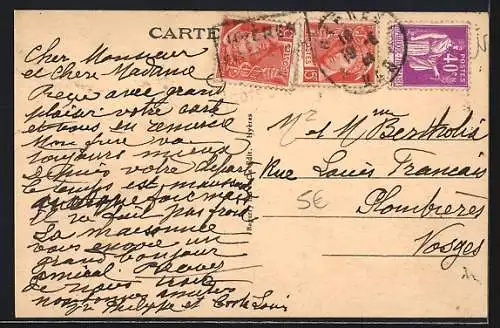 CARTE
HYERES
POSTES
40c
5
Cher Monsieur
et Chère Madame
Reçu avec grand
plaisir votre carte
et vous en remercie
Mon frère va
toujours mieux
depuis votre départ
le temps est mauvais
fait pas froid
La maisonnée
vous envoie un
grand bonjour
amical. Recevez
de nous trois
nos bonnes amitiés
Philippe et Louis
Hyères
Mr et Mme Bertholin
Rue Louis Français
Plombières
Vosges
5€